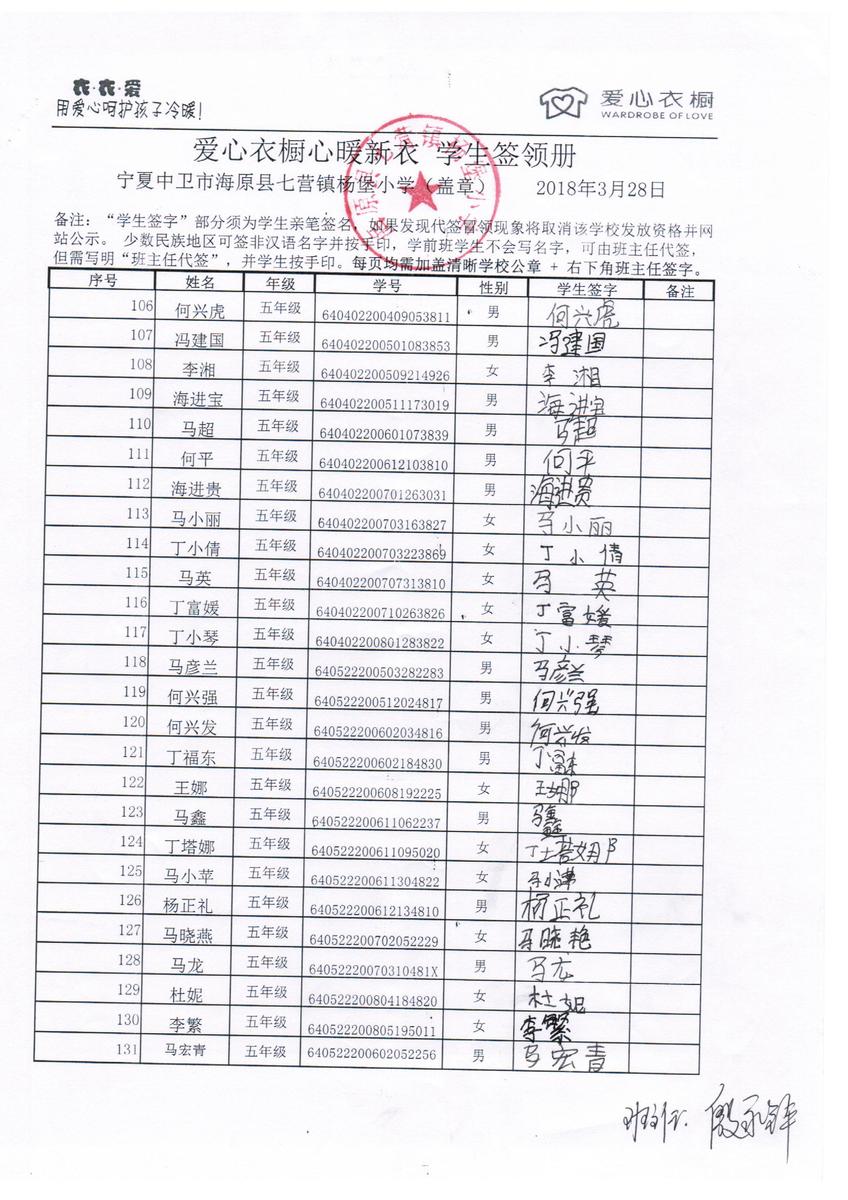 衣·衣·爱
用爱心呵护孩子冷暖!
爱心衣橱
WARDROBE OF LOVE
爱心衣橱心暖新衣 学生签领册
宁夏中卫市海原县七营镇杨堡小学(盖章) 2018年3月28日
海原县七营镇杨堡小学
备注:“学生签字”部分须为学生亲笔签名,如果发现代签冒领现象将取消该学校发放资格并网
站公示。 少数民族地区可签非汉语名字并按手印,学前班学生不会写名字,可由班主任代签,
但需写明“班主任代签”,并学生按手印。每页均需加盖清晰学校公章 + 右下角班主任签字。
序号 姓名 年级 学号 性别 学生签字 备注
106 何兴虎 五年级 640402200409053811 男 何兴虎
107 冯建国 五年级 640402200501083853 男 冯建国
108 李湘 五年级 640402200509214926 女 李湘
109 海进宝 五年级 640402200511173019 男 海进宝
110 马超 五年级 640402200601073839 男 马超
111 何平 五年级 640402200612103810 男 何平
112 海进贵 五年级 640402200701263031 男 海进贵
113 马小丽 五年级 640402200703163827 女 马小丽
114 丁小倩 五年级 640402200703223869 女 丁小倩
115 马英 五年级 640402200707313810 女 马英
116 丁富媛 五年级 640402200710263826 女 丁富媛
117 丁小琴 五年级 640402200801283822 女 丁小琴
118 马彦兰 五年级 640522200503282283 男 马彦兰
119 何兴强 五年级 640522200512024817 男 何兴强
120 何兴发 五年级 640522200602034816 男 何兴发
121 丁福东 五年级 640522200602184830 男 丁福东
122 王娜 五年级 640522200608192225 女 王娜
123 马鑫 五年级 640522200611062237 男 马鑫
124 丁塔娜 五年级 640522200611095020 女 丁塔娜
125 马小苹 五年级 640522200611304822 女 马小苹
126 杨正礼 五年级 640522200612134810 男 杨正礼
127 马晓燕 五年级 640522200702052229 女 马晓艳
128 马龙 五年级 64052220070310481X 男 马龙
129 杜妮 五年级 640522200804184820 女 杜妮
130 李繁 五年级 640522200805195011 女 李繁
131 马宏青 五年级 640522200602052256 男 马宏青
班主任: